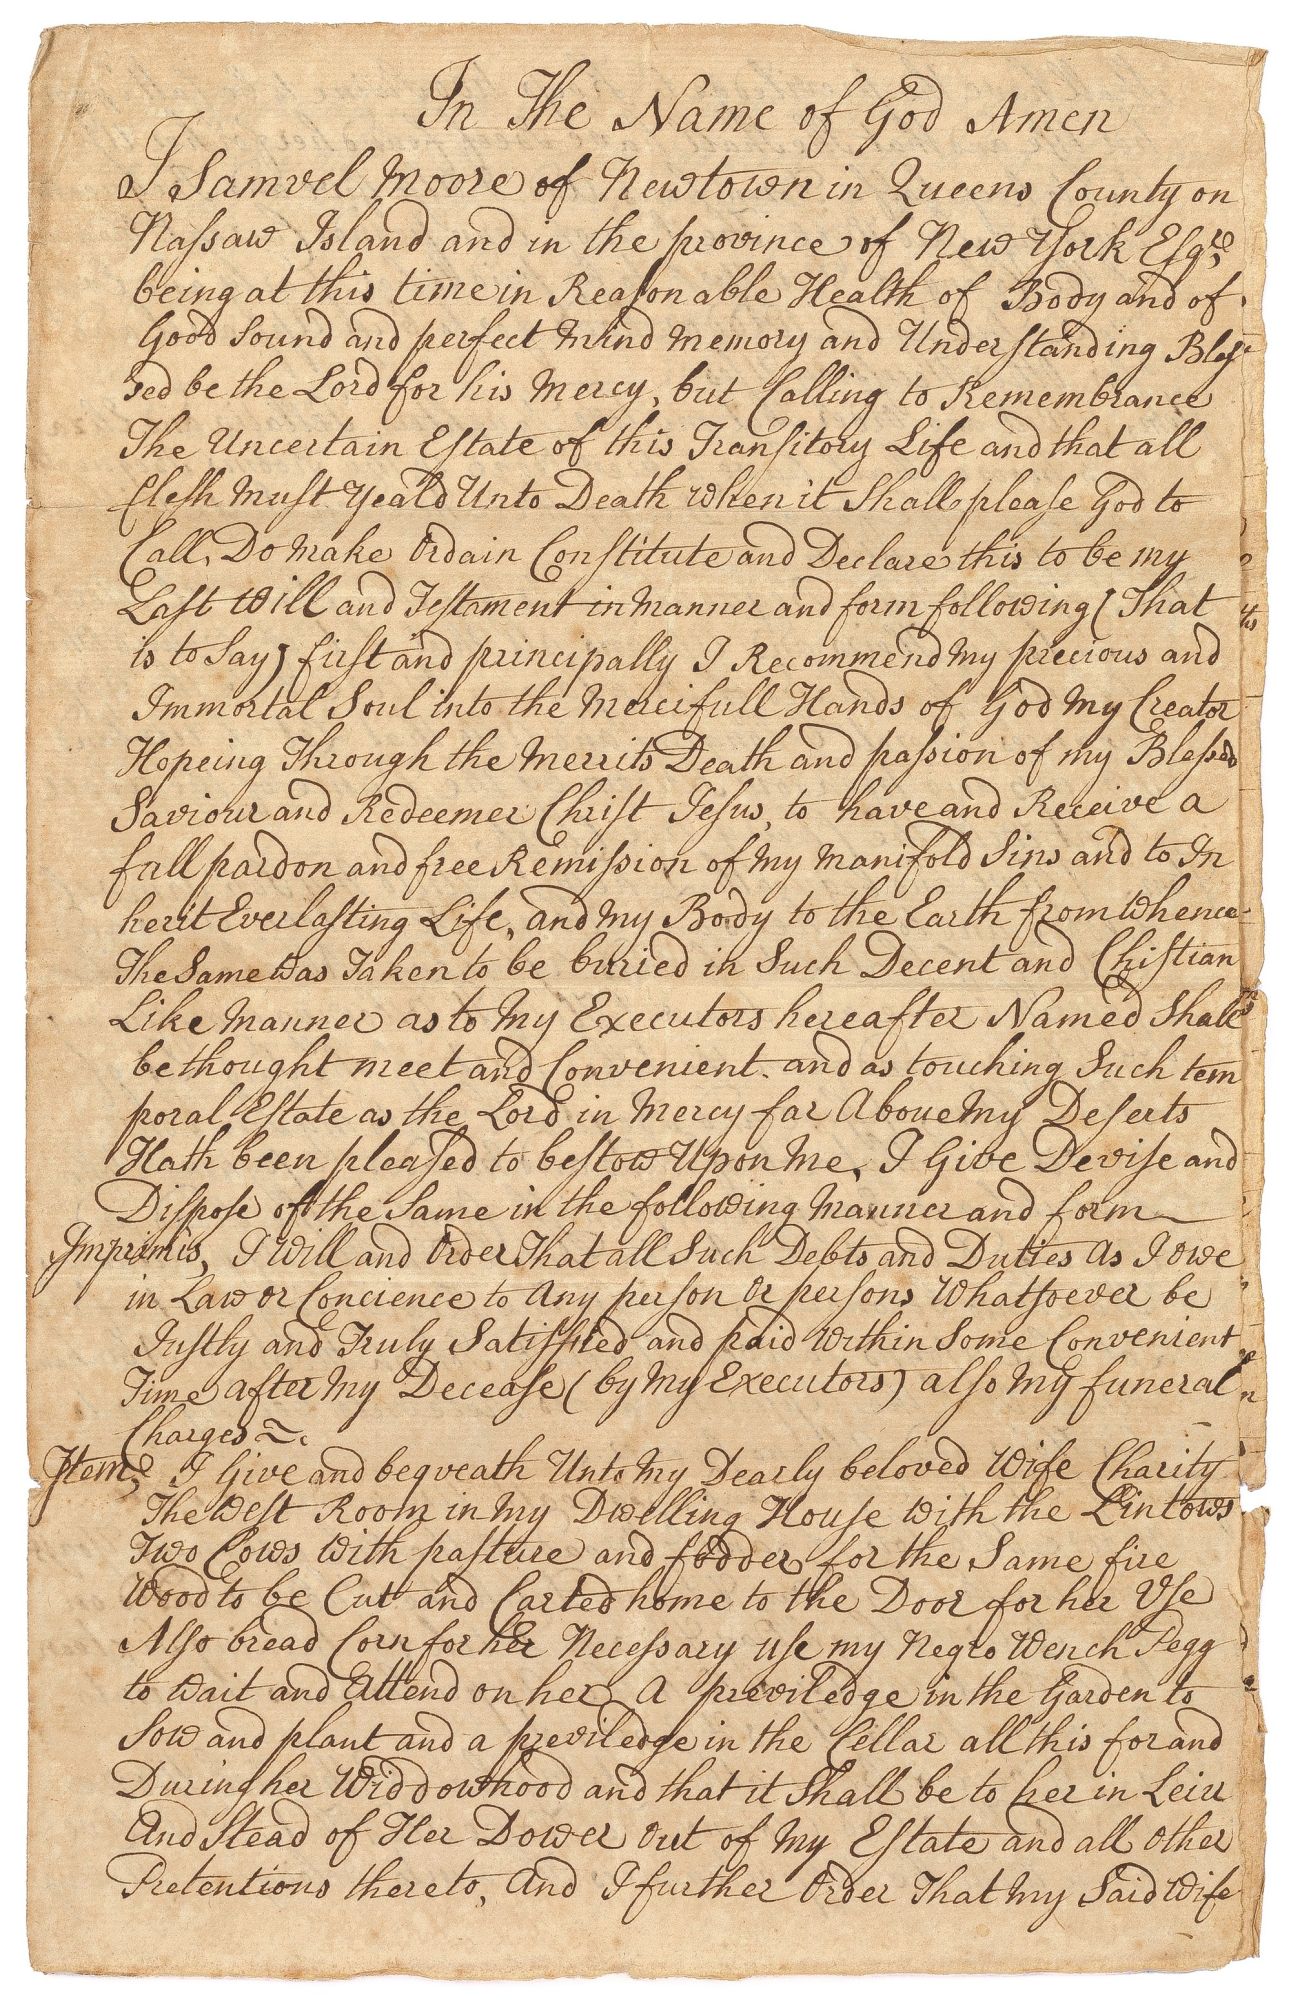 In The Name of God Amen
I Samvel Moore of Newtown in Queens County on
Nassaw Island and in the province of New York Esqre,
being at this time in Reasonable Health of Body and of
Good Sound and perfect Mind Memory and Understanding Bles
sed be the Lord for his Mercy, but Calling to Remembrance
The Uncertain Estate of this Transitory Life and that all
Flesh Must Yeald Unto Death when it Shall please God to
Call, Do make Ordain Constitute and Declare this to be my
Last Will and Testament in manner and form following (That
is to Say) first and principally I Recommend My precious and
Immortal Soul into the Mercifull Hands of God My Creator
Hopeing Through the Merrits Death and passion of my Blessed
Saviour and Redeemer Christ Jesus, to have and Receive a
full pardon and free Remission of My Manifold Sins and to In
herit Everlasting Life, and My Body to the Earth from Whence
The Same was Taken to be buried in Such Decent and Chistian
Like Manner as to My Executors hereafter Named Shall
be thought meet and Convenient. and as touching Such tem
poral Estate as the Lord in Mercy far Above My Deserts
Hath been pleased to bestow Upon Me, I Give Devise and
Dispose of the Same in the following Manner and form
Imprimis, I Will and Order That all Such Debts and Duties As I owe
in Law or Concience to Any person Or persons Whatsoever be
Justly and Truly Satisfied and paid Within Some Convenient
Time after My Decease (by My Executors) also My funeral
Charges
Item, I Give and beqveath Unto My Dearly beloved Wife Charity
The West Room in my Dwelling House with the Lintows
Two Cows with pasture and fodder for the Same fire
Wood to be Cut and Carted home to the Door for her Vse
Also bread Corn for her Necessary use my Negro Wench Pegg
to Wait and Attend on her A previledge in the Garden to
Sow and plant and a previledge in the Cellar all this for and
During her Widdowhood and that it Shall be to her in Leiu
And Stead of Her Dower out of My Estate and all Other
Pretentions thereto, And I further Order That my Said Wife